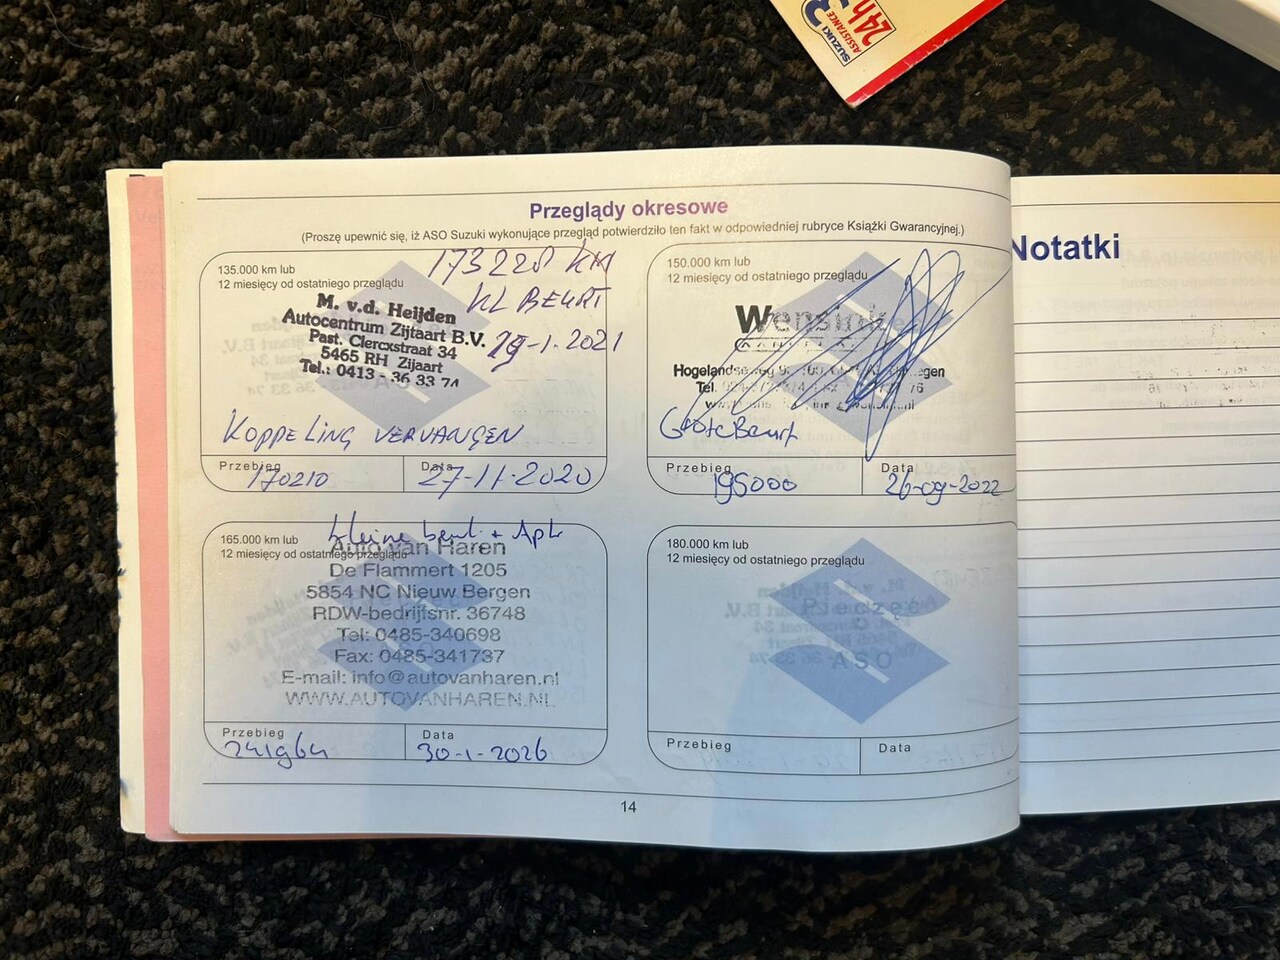 SUZUKI
ASSISTANCE
24h
Przeglądy okresowe
(Proszę upewnić się, iż ASO Suzuki wykonujące przegląd potwierdziło ten fakt w odpowiedniej rubryce Książki Gwarancyjnej.)
135.000 km lub
12 miesięcy od ostatniego przeglądu
173228 KM
KL BEURT
29-1-2021
M. v.d. Heijden
Autocentrum Zijtaart B.V.
Past. Clercxstraat 34
5465 RH Zijaart
Tel.: 0413 - 36 33 74
KOPPELING VERVANGEN
Przebieg
170210
Data
27-11-2020
150.000 km lub
12 miesięcy od ostatniego przeglądu
Wensink
Hogelandseweg
Tel.
Grote Beurt
Przebieg
195000
Data
26-09-2022
165.000 km lub
12 miesięcy od ostatniego przeglądu
kleine beurt + Apk
Auto van Haren
De Flammert 1205
5854 NC Nieuw Bergen
RDW-bedrijfsnr. 36748
Tel: 0485-340698
Fax: 0485-341737
E-mail: info@autovanharen.nl
WWW.AUTOVANHAREN.NL
Przebieg
241964
Data
30-1-2026
180.000 km lub
12 miesięcy od ostatniego przeglądu
Pieczęć
ASO
Przebieg
Data
14
Notatki